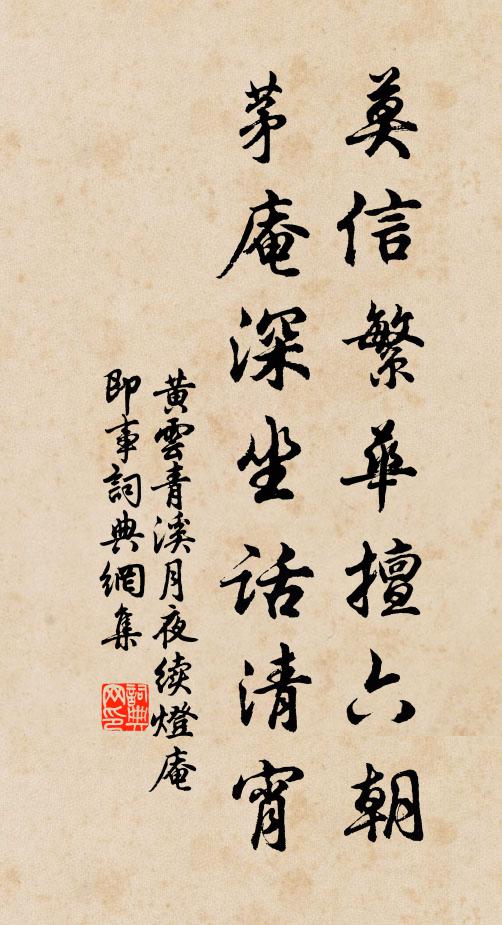 莫信繁華擅六朝
茅庵深坐話清宵
黃雲青溪月夜續燈庵
即事詞典網集
詞典
网印